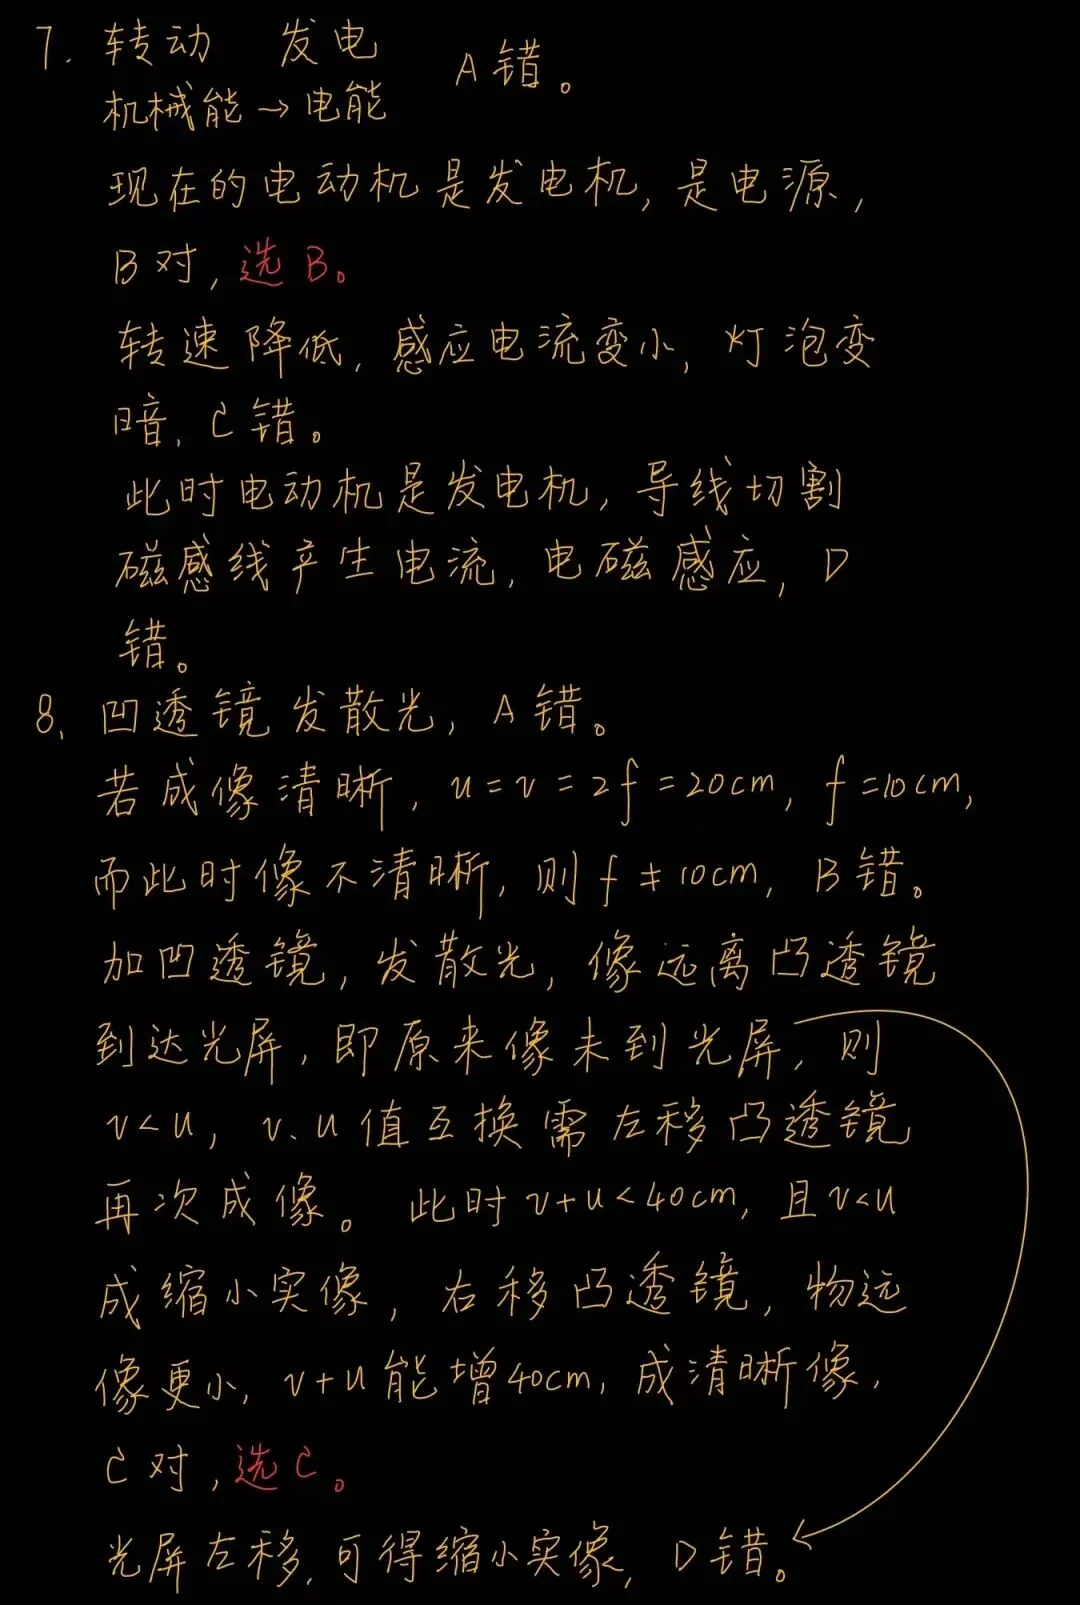 7. 转动 发电 A错。
机械能→电能
现在的电动机是发电机,是电源,
B对,选B。
转速降低,感应电流变小,灯泡变
暗,C错。
此时电动机是发电机,导线切割
磁感线产生电流,电磁感应,D
错。
8. 凹透镜发散光,A错。
若成像清晰,u=v=2f=20cm,f=10cm,
而此时像不清晰,则f≠10cm,B错。
加凹透镜,发散光,像远离凸透镜
到达光屏,即原来像未到光屏,则
v<u,v、u值互换需左移凸透镜
再次成像。此时v+u<40cm,且v<u
成缩小实像,右移凸透镜,物远
像更小,v+u能增40cm,成清晰像,
C对,选C。
光屏左移,可得缩小实像,D错。